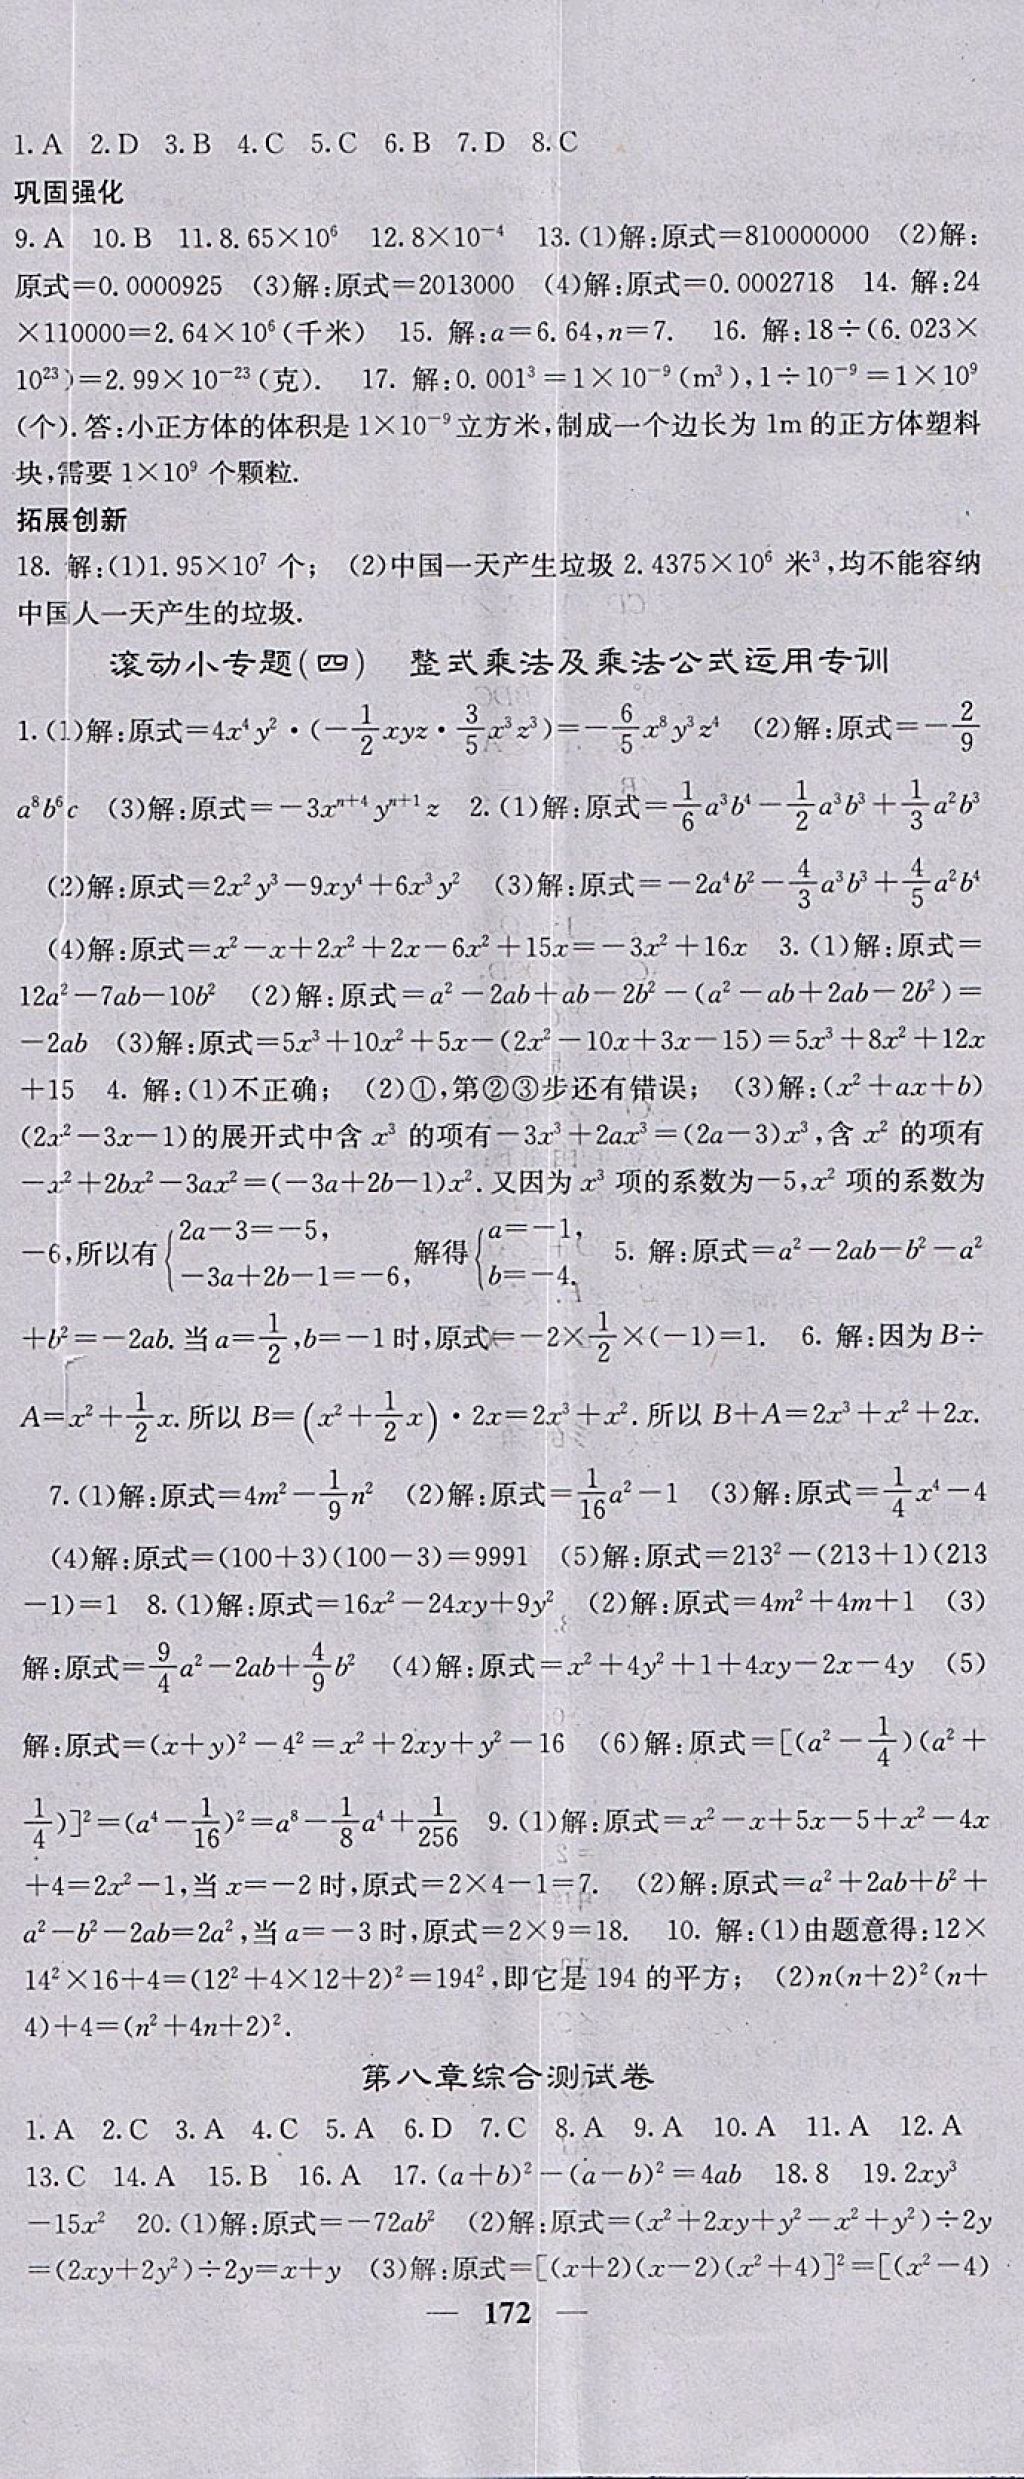 1. A 2. D 3. B 4. C 5. C 6. B 7. D 8. C
巩固强化
9. A 10. B 11. 8.65×10⁶ 12. 8×10⁻⁴ 13. (1)解:原式=810000000 (2)解:
原式=0.0000925 (3)解:原式=2013000 (4)解:原式=0.0002718 14. 解:24
×110000=2.64×10⁶(千米) 15. 解:a=6.64,n=7. 16. 解:18÷(6.023×
10²³)=2.99×10⁻²³(克). 17. 解:0.001³=1×10⁻⁹(m³),1÷10⁻⁹=1×10⁹
(个).答:小正方体的体积是1×10⁻⁹立方米,制成一个边长为1m的正方体塑料
块,需要1×10⁹个颗粒.
拓展创新
18. 解:(1)1.95×10⁷个; (2)中国一天产生垃圾2.4375×10⁶米³,均不能容纳
中国人一天产生的垃圾.
滚动小专题(四) 整式乘法及乘法公式运用专训
1. (1)解:原式=4x⁴y²·(-1/2xyz·3/5x³z³)=-6/5x⁸y³z⁴ (2)解:原式=-2/9
a⁸b⁶c (3)解:原式=-3xⁿ⁺⁴yⁿ⁺¹z 2. (1)解:原式=1/6a³b⁴-1/2a³b³+1/3a²b³
(2)解:原式=2x²y³-9xy⁴+6x³y² (3)解:原式=-2a⁴b²-4/3a³b³+4/5a²b⁴
(4)解:原式=x²-x+2x²+2x-6x²+15x=-3x²+16x 3. (1)解:原式=
12a²-7ab-10b² (2)解:原式=a²-2ab+ab-2b²-(a²-ab+2ab-2b²)=
-2ab (3)解:原式=5x³+10x²+5x-(2x²-10x+3x-15)=5x³+8x²+12x
+15 4. 解:(1)不正确; (2)①,第②③步还有错误; (3)解:(x²+ax+b)
(2x²-3x-1)的展开式中含x³的项有-3x³+2ax³=(2a-3)x³,含x²的项有
-x²+2bx²-3ax²=(-3a+2b-1)x².又因为x³项的系数为-5,x²项的系数为
-6,所以有{2a-3=-5, -3a+2b-1=-6, 解得{a=-1, b=-4. 5. 解:原式=a²-2ab-b²-a²
+b²=-2ab.当a=1/2,b=-1时,原式=-2×1/2×(-1)=1. 6. 解:因为B÷
A=x²+1/2x.所以B=(x²+1/2x)·2x=2x³+x².所以B+A=2x³+x²+2x.
7. (1)解:原式=4m²-1/9n² (2)解:原式=1/16a²-1 (3)解:原式=1/4x⁴-4
(4)解:原式=(100+3)(100-3)=9991 (5)解:原式=213²-(213+1)(213
-1)=1 8. (1)解:原式=16x²-24xy+9y² (2)解:原式=4m²+4m+1 (3)
解:原式=9/4a²-2ab+4/9b² (4)解:原式=x²+4y²+1+4xy-2x-4y (5)
解:原式=(x+y)²-4²=x²+2xy+y²-16 (6)解:原式=[(a²-1/4)(a²+
1/4)]²=(a⁴-1/16)²=a⁸-1/8a⁴+1/256 9. (1)解:原式=x²-x+5x-5+x²-4x
+4=2x²-1,当x=-2时,原式=2×4-1=7. (2)解:原式=a²+2ab+b²+
a²-b²-2ab=2a²,当a=-3时,原式=2×9=18. 10. 解:(1)由题意得:12×
14²×16+4=(12²+4×12+2)²=194²,即它是194的平方; (2)n(n+2)²(n+
4)+4=(n²+4n+2)².
第八章综合测试卷
1. A 2. C 3. A 4. C 5. A 6. D 7. C 8. A 9. A 10. A 11. A 12. A
13. C 14. A 15. B 16. A 17. (a+b)²-(a-b)²=4ab 18. 8 19. 2xy³
-15x² 20. (1)解:原式=-72ab² (2)解:原式=(x²+2xy+y²-x²+y²)÷2y
=(2xy+2y²)÷2y=x+y (3)解:原式=[(x+2)(x-2)(x²+4)]²=[(x²-4)
— 172 —